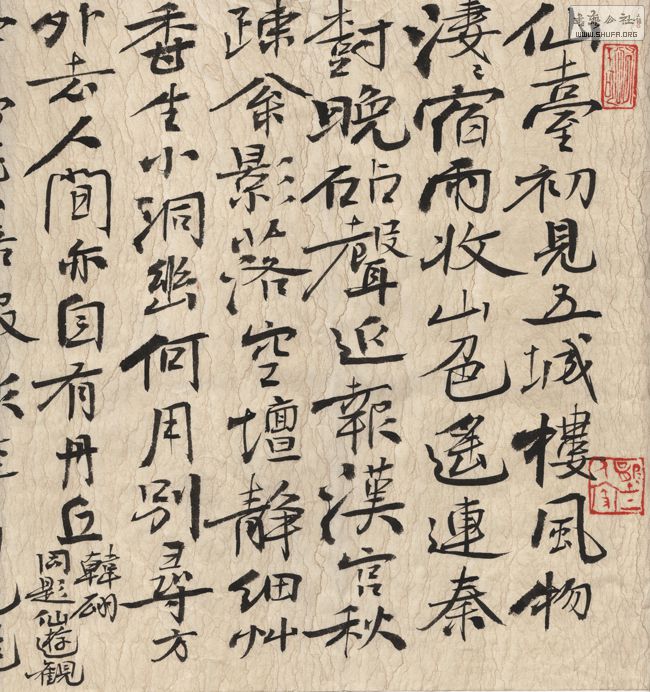 仙臺初見五城樓風物
淒〻宿雨收山色遙連秦
樹晚砧聲近報漢宮秋
疎影落空壇靜細艸
香生小洞幽何用別尋方
外去人間亦自有丹丘
韓翃
同題仙遊觀
書法公社
WWW.SHUFA.ORG